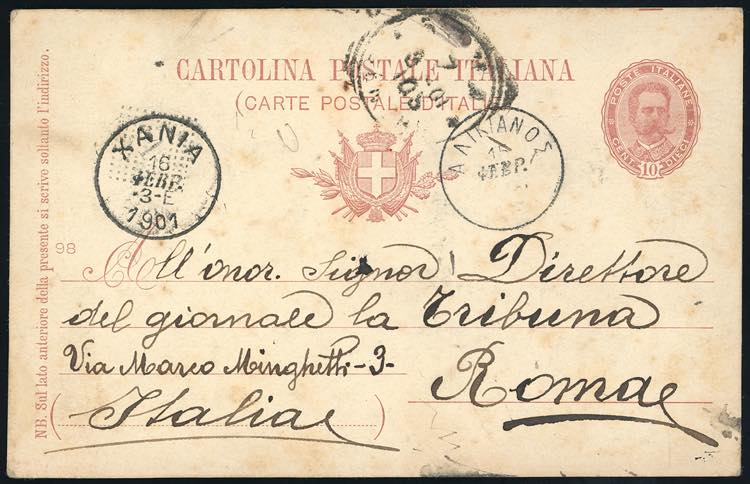 CARTOLINA POSTALE ITALIANA
(CARTE POSTALE D'ITALIE)
POSTE ITALIANE
CENT. 10 DIECI
ΧΑΝΙΑ
16
ΦΕΒΡ.
3-Ε
1901
ΑΛΙΚΙΑΝΟΣ
ΦΕΒΡ.
98
All'onor. Signor Direttore
del giornale la Tribuna
Via Marco Minghetti-3-
Roma
(Italia)
NB. Sul lato anteriore della presente si scrive soltanto l'indirizzo.